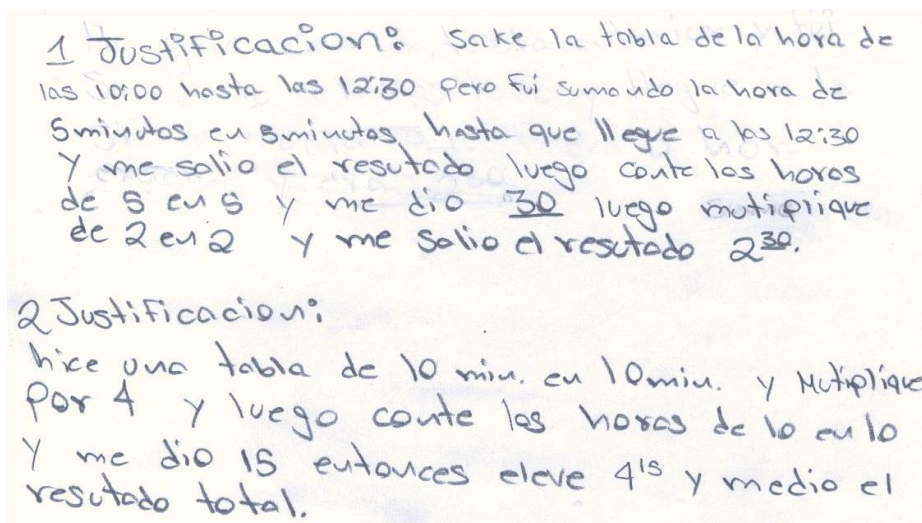 1 Justificacion: Sake la tabla de la hora de
las 10:00 hasta las 12:30 pero fui sumando la hora de
5 minutos en 5 minutos, hasta que llegue a las 12:30
y me salio el resutado luego conte las horas
de 5 en 5 y me dio 30 luego mutiplique
de 2 en 2 y me salio el resutado 2³⁰.
2 Justificacion:
hice una tabla de 10 min. en 10 min. y Mutiplique
Por 4 y luego conte las horas de 10 en 10
y me dio 15 entonces eleve 4¹⁵ y medio el
resutado total.